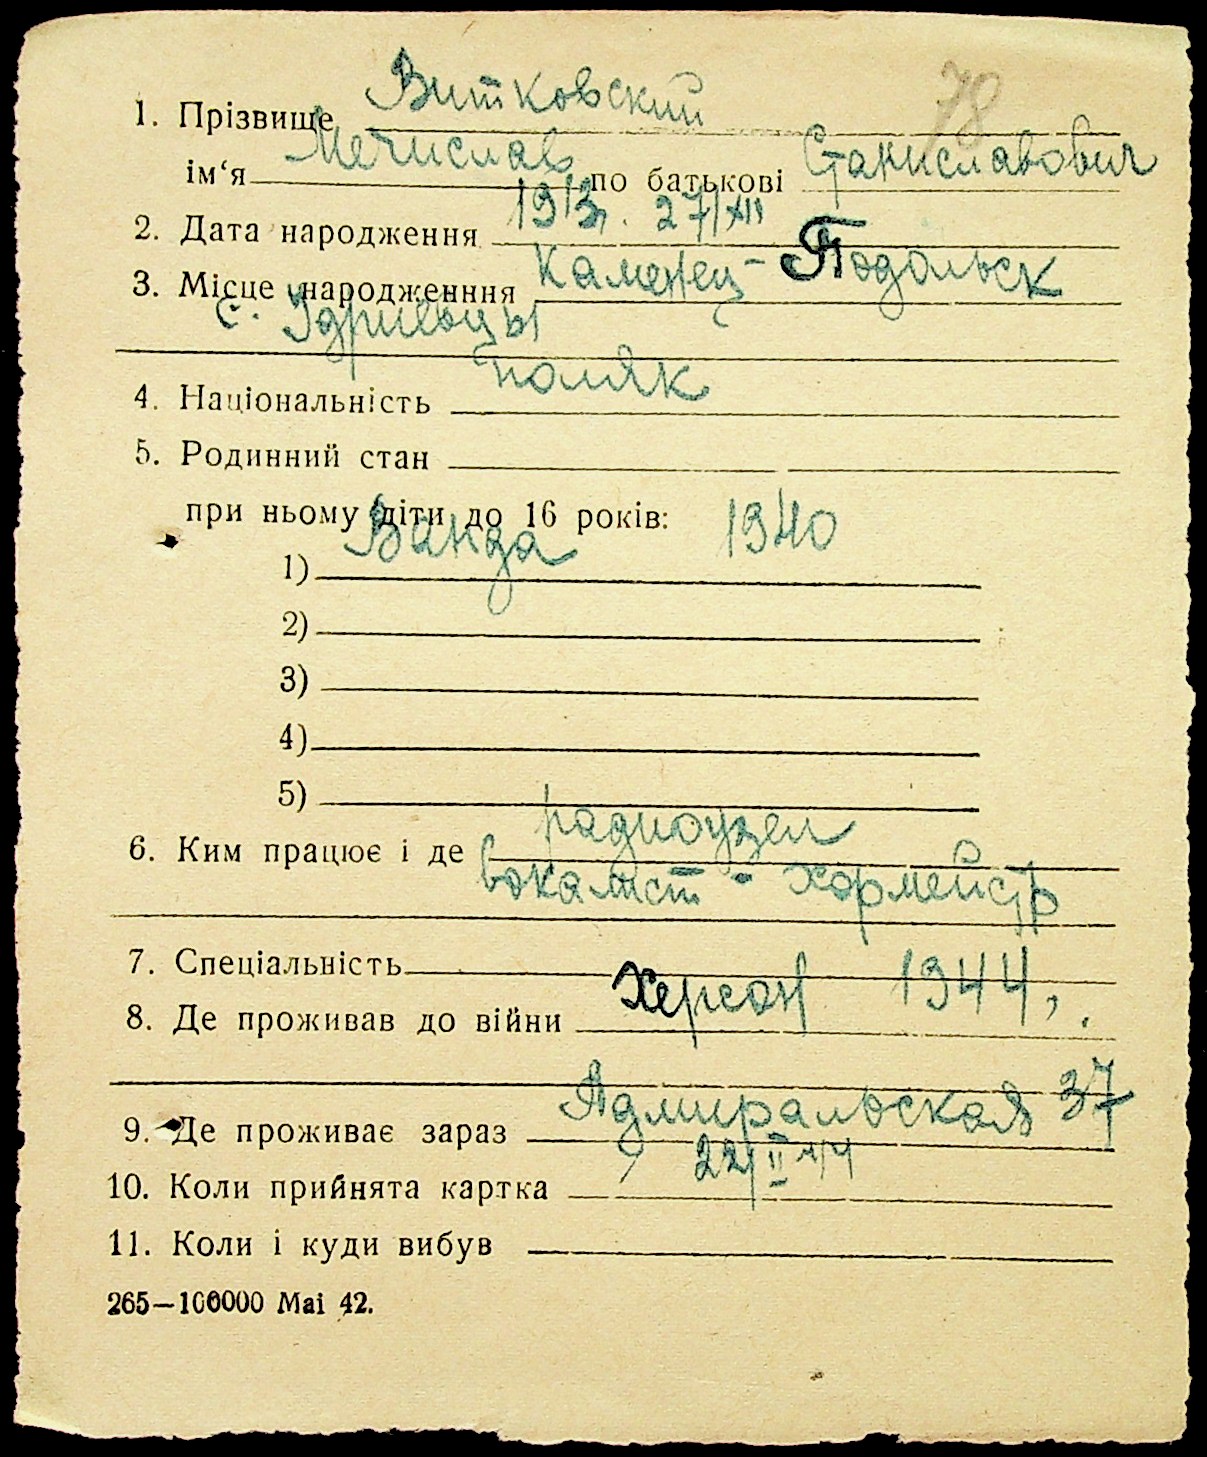 78
1. Прізвище Витковский
ім‘я Мечислав по батькові Станиславович
2. Дата народження 27/XII
3. Місце народженння Каменец-Подольск
с.
4. Національність поляк
5. Родинний стан
при ньому діти до 16 років:
1) Ванда 1940
2)
3)
4)
5)
6. Ким працює і де радиоузел
вокалист - хормейстр
7. Спеціальність
8. Де проживав до війни Херсон 1944,
9. Де проживає зараз Адмиральская 37
10. Коли прийнята картка 22/II 44
11. Коли і куди вибув
265—100000 Mai 42.